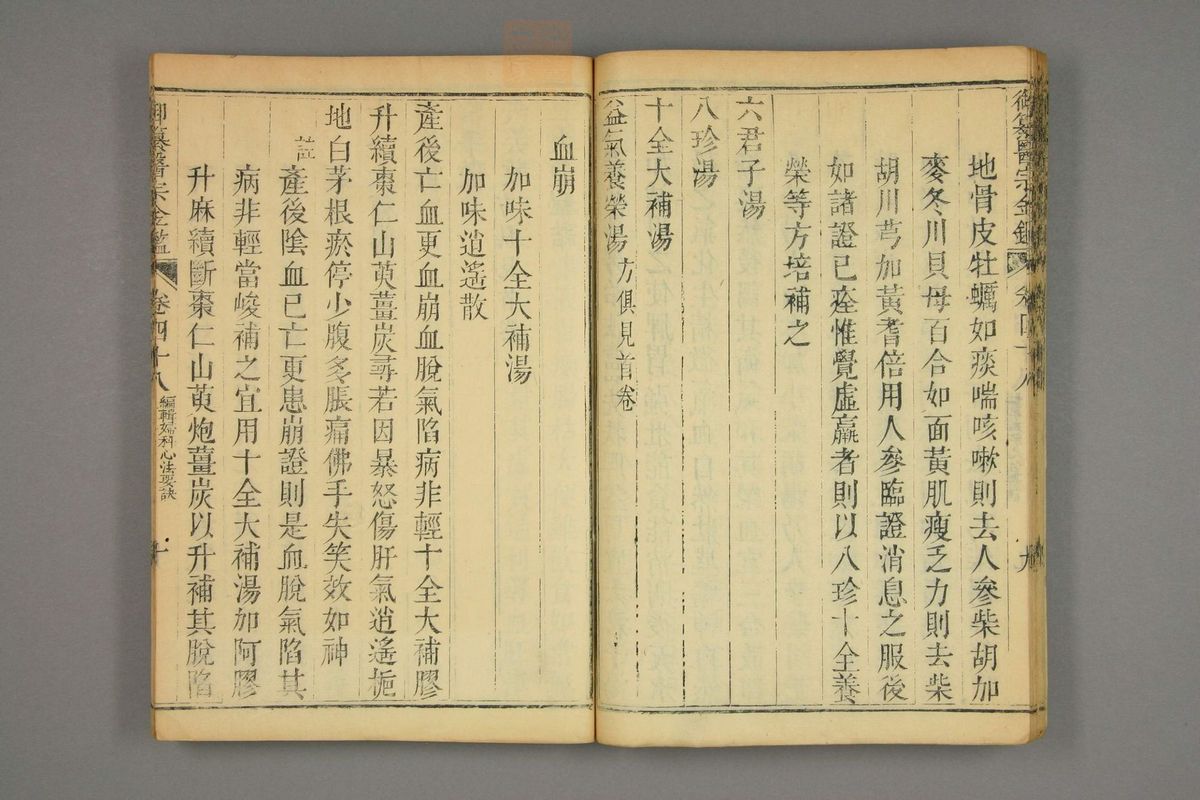 御纂醫宗金鑑 九
地骨皮牡蠣如痰喘咳嗽則去人參柴胡加
麥冬川貝母百合如面黃肌瘦乏力則去柴
胡川芎加黃耆倍用人參臨證消息之服後
如諸證已痊惟覺虛羸者則以八珍十全養
榮等方培補之
六君子湯
八珍湯
十全大補湯
益氣養榮湯方俱見首卷
血崩
加味十全大補湯
加味逍遙散
產後亡血更血崩血脫氣陷病非輕十全大補膠
升續棗仁山萸薑炭尋若因暴怒傷肝氣逍遙梔
地白茅根瘀停少腹多脹痛佛手失笑效如神
註產後陰血已亡更患崩證則是血脫氣陷其
病非輕當峻補之宜用十全大補湯加阿膠
升麻續斷棗仁山萸炮薑炭以升補其脫陷
御纂醫宗金鑑 卷四十八 編輯婦科心法要訣 十